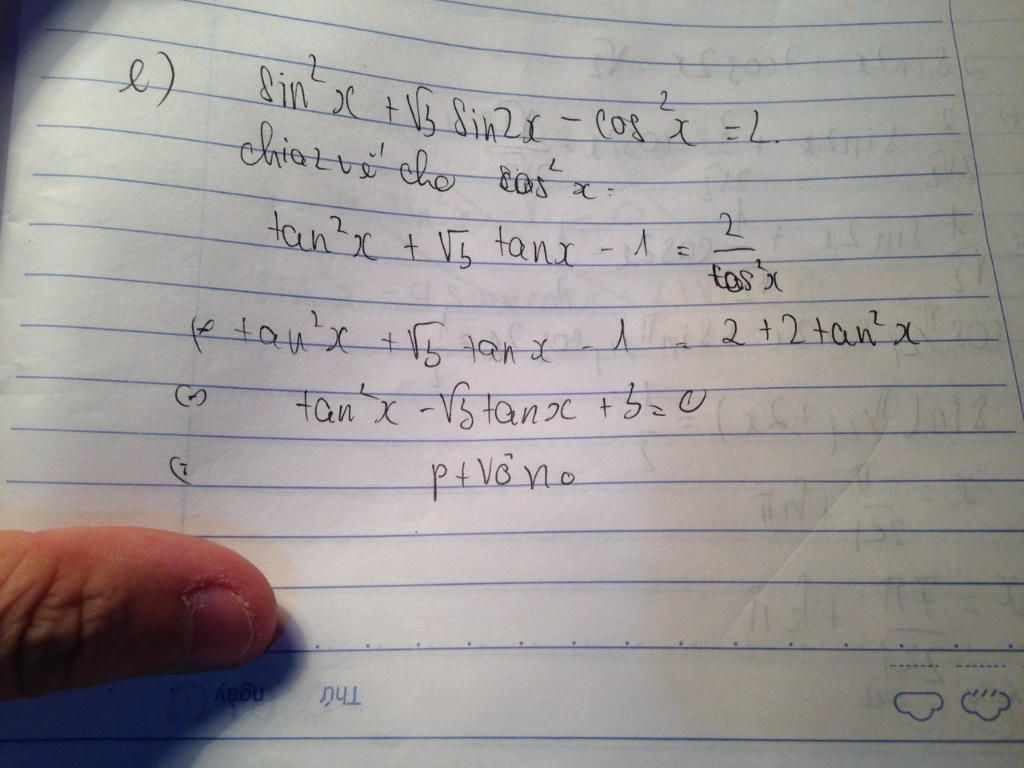 e) sin²x + √3 sin2x - cos²x = 2.
chia 2 vế cho cos²x:
tan²x + √3 tanx - 1 = 2/cos²x
tan²x + √3 tanx - 1 = 2 + 2tan²x
tan²x - √3 tanx + 3 = 0
pt vô no
Thứ ngày